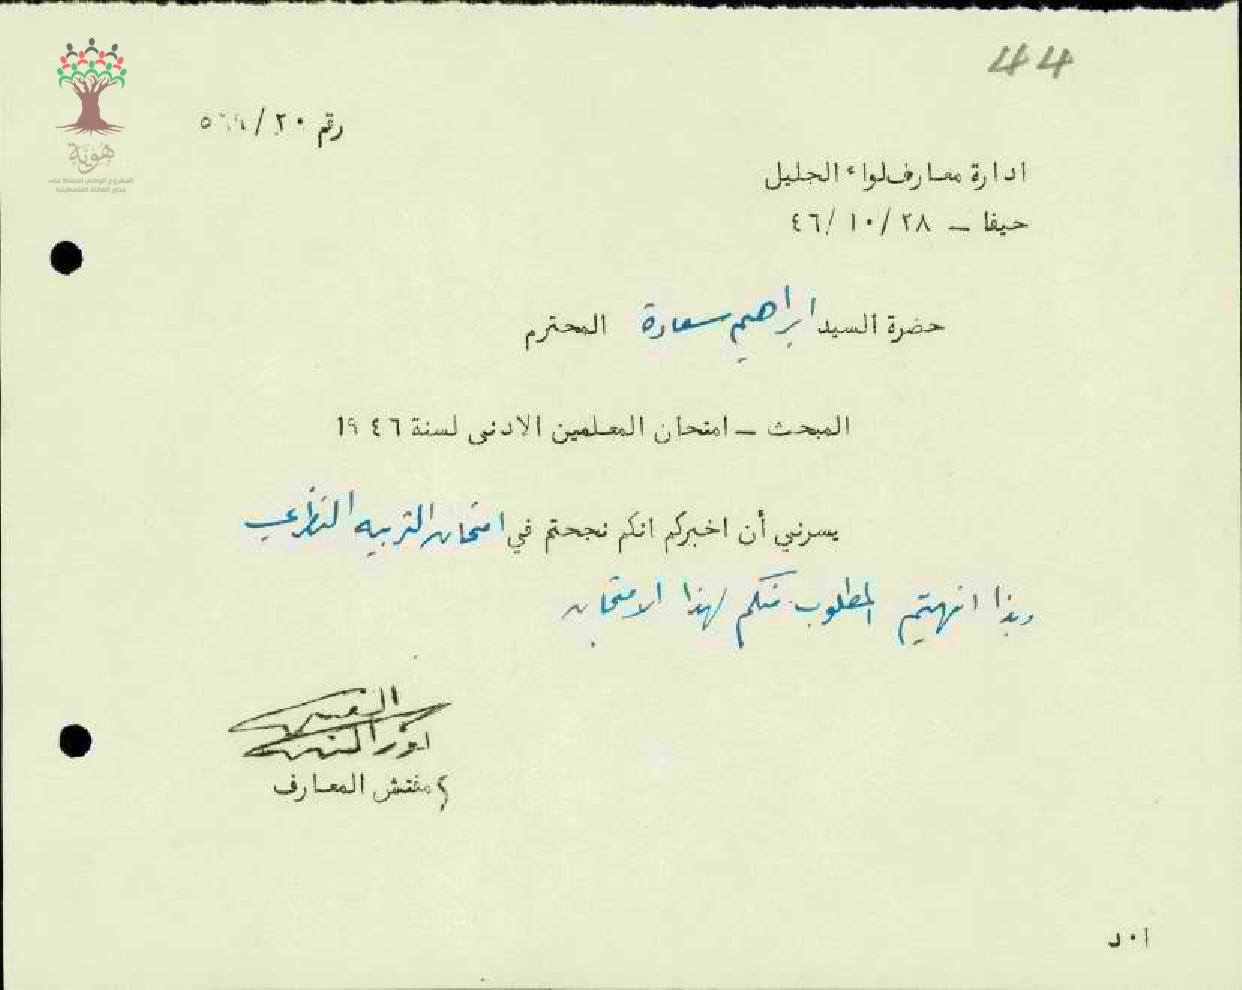 44
هوية
المشروع الوطني للحفاظ على
جذور العائلة الفلسطينية
رقم ٢٠/
ادارة معارف لواء الجليل
حيفا – ٢٨/١٠/٤٦
حضرة السيد ابراهيم سعادة المحترم
المبحث – امتحان المعلمين الادنى لسنة ١٩٤٦
يسرني أن اخبركم انكم نجحتم في امتحان التربيه النظري
وبذا انهيتم المطلوب منكم لهذا الامتحان
مفتش المعارف
ا٠د